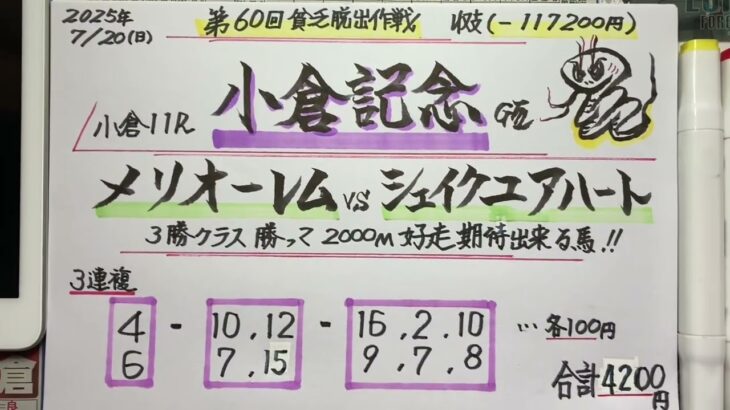 2025年 第60回貧乏脱出作戦 収支(-117200円)
7/20(日)
小倉11R 小倉記念 GⅢ
メリオーレム VS シェイクユアハート
3勝クラス勝って2000M好走期待出来る馬!!
3連複
4 - 10,12 - 16,2,10 …各100円
6 7,15 9,7,8
合計4200円